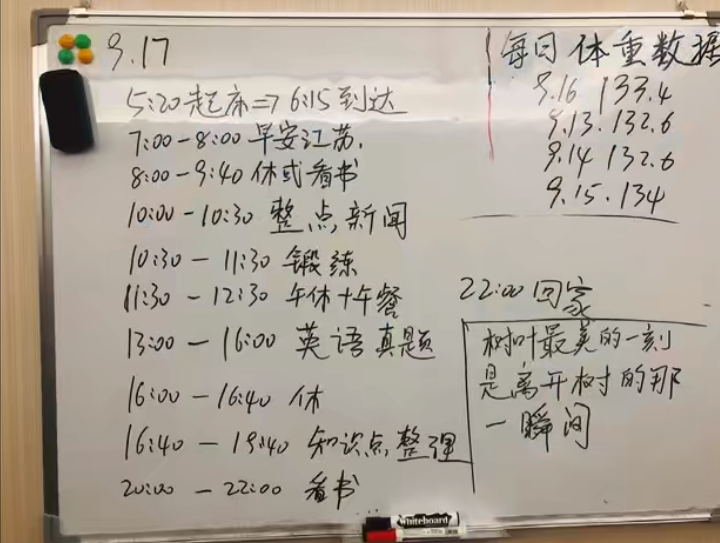 9.17
5:20起床=7 6:15到达
7:00-8:00 早安江苏.
8:00-9:40 休或看书
10:00-10:30 整点新闻
10:30-11:30 锻练
11:30-12:30 午休+午餐
13:00-16:00 英语真题
16:00-16:40 休
16:40-19:40 知识点整理
20:00-22:00 看书
每日体重数据
9.16 133.4
9.13.132.6
9.14 132.6
9.15.134
22:00回家
树叶最美的一刻
是离开树的那
一瞬间
Whiteboard